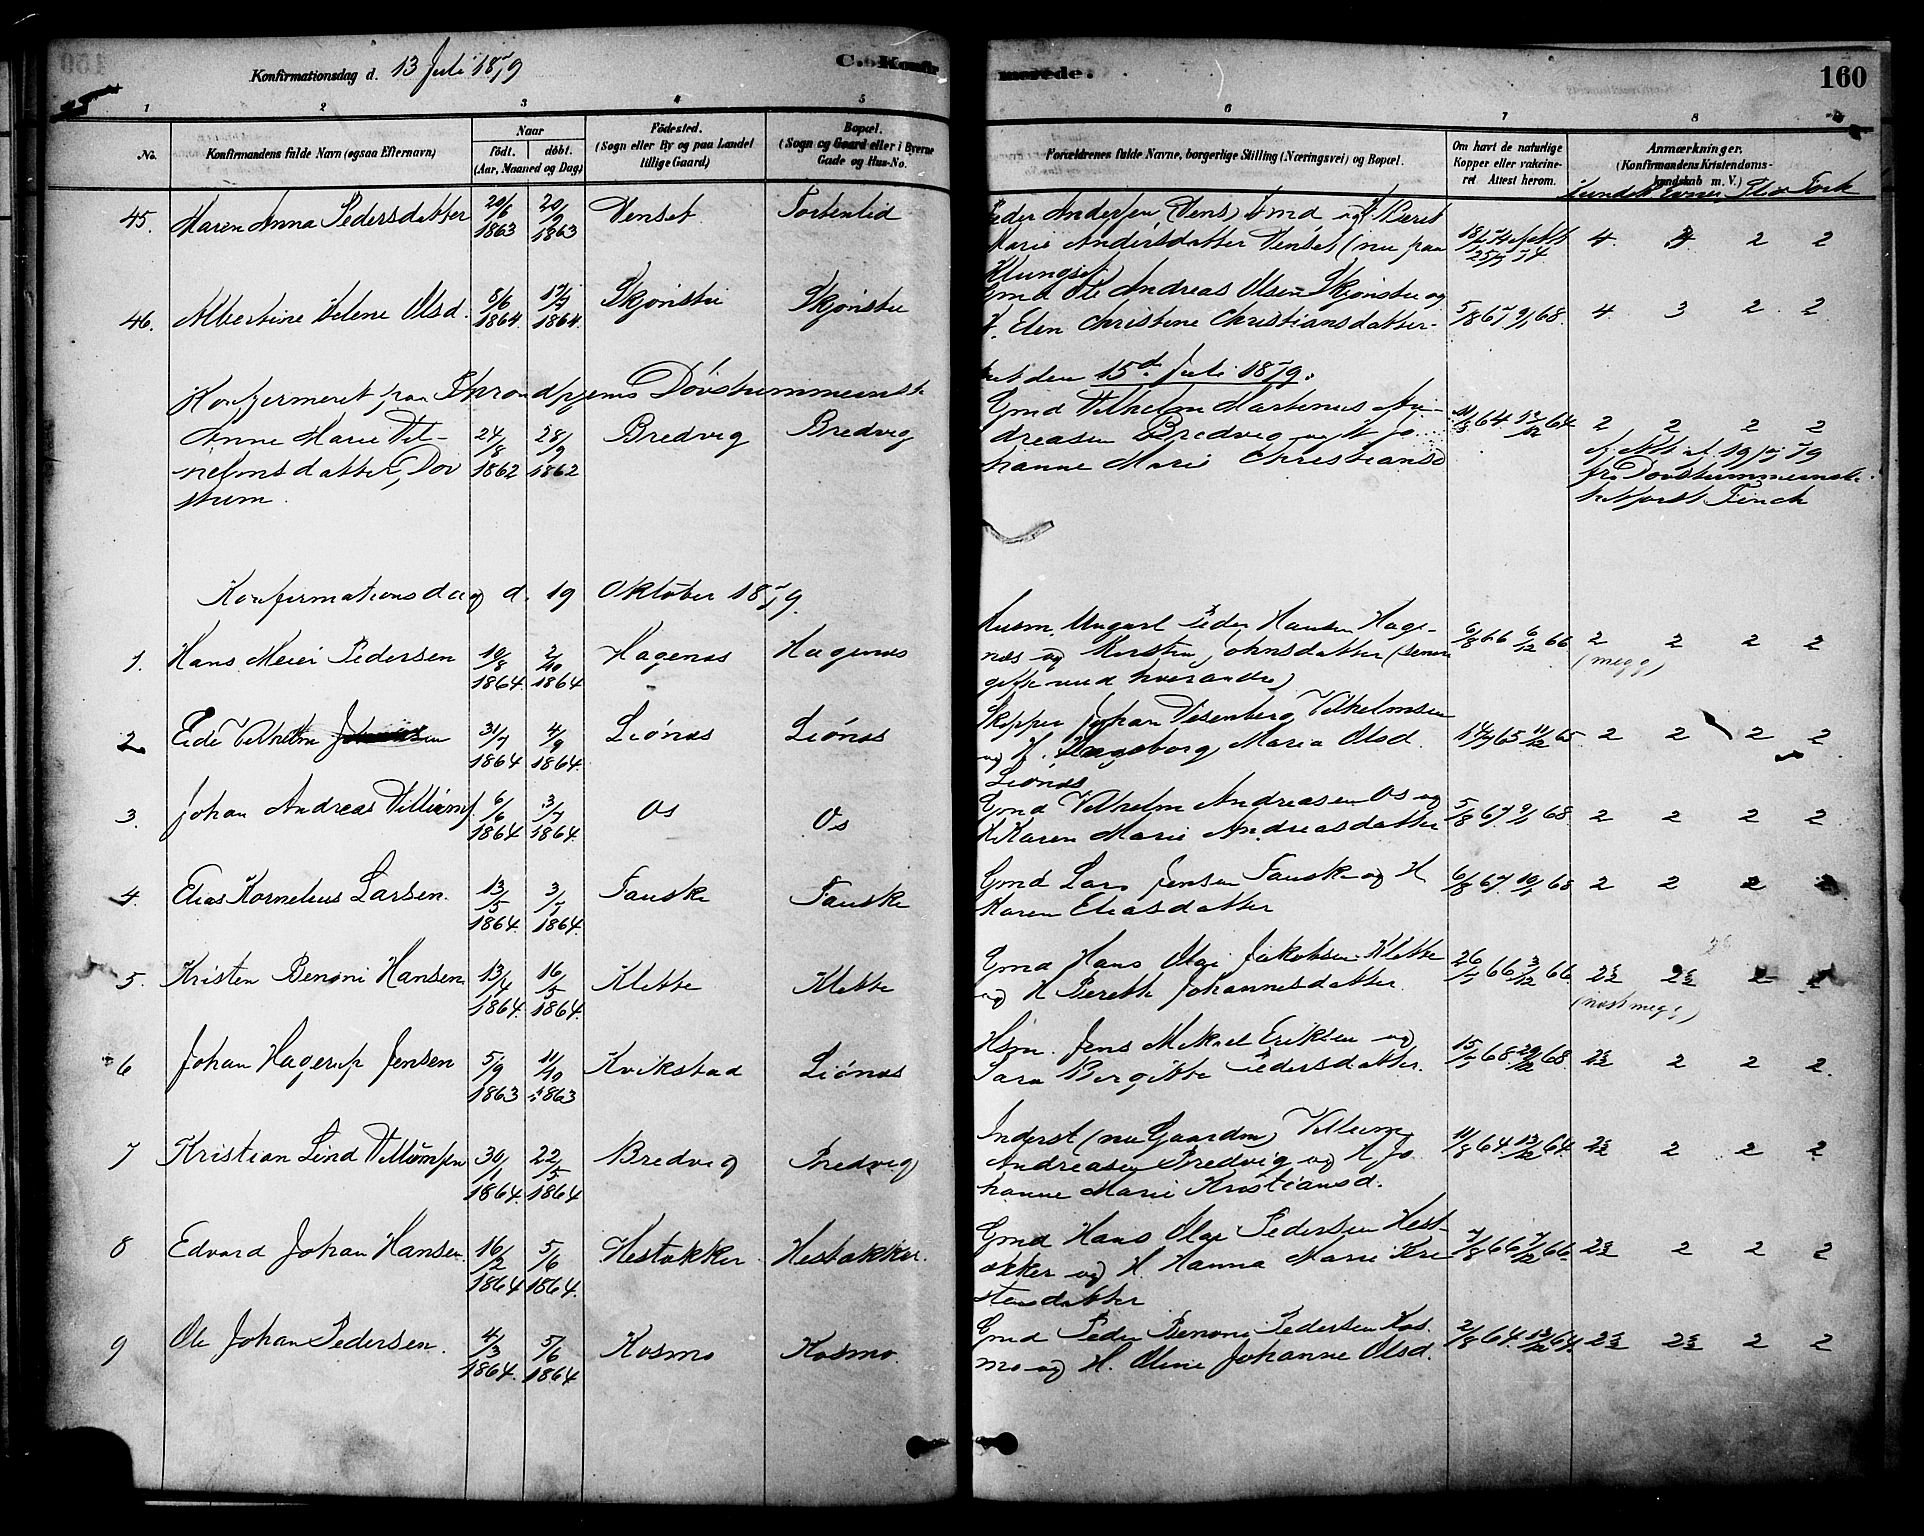 Konfirmationsdag d. 13 Juli 1879
C. Konfirmerede.
160
1 2 3 4 5 6 7 8
No.
Konfirmandens fulde Navn (ogsaa Efternavn)
Naar
födt. döbt.
(Aar, Maaned og Dag)
Födested.
(Sogn eller By og paa Landet
tillige Gaard)
Bopæl.
(Sogn og Gaard eller i Byerne
Gade og Hus-No.
Forældrenes fulde Navne, borgerlige Stilling (Næringsvei) og Bopæl.
Om havt de naturlige
Kopper eller vakcine-
ret Attest herom.
Anmærkninger.
(Konfirmandens Kristendoms-
kundskab m. V.)
45. Maren Anna Pedersdatter 20/6 1863 20/9 1863 Venset
Peder Andersen (Vens) Gmd og H. Beret
Marie Andersdatter Venset (nu paa
Klungset)
4. 2 2
46. Albertine Velene Olsd. 8/6 1864 17/7 1864. Skjönstu Skjönstu
Gmd Ole Andreas Olsen Skjönstu og
H. Elen Christine Christiansdatter.
5/8 67 9/1 68. 4. 3 2. 2
Konfirmeret paa Throndhjems Dövstummeinsti-
tut den 15d Juli 1879.
Anne Marie Vil-
helmsdatter, Döv
stum.
24/8 1862 28/9 1862 Bredvig Bredvig
Gmd Vilhelm Martinus An-
dreasen Bredvig og H. Jo-
hanne Marie Christiansd
11/8 64 12/12 64 2 2 2 2
fr Dövstummeinst.
Finch
Konfirmationsdag d. 19 Oktober 1879.
1. Hans Meier Pedersen 19/8 1864 2/10 1864 Hagenæs Hagenæs
Husm. Ungkarl Peder Hansen Hage-
næs og Kirstin Johnsdatter (senere
gifte med hverandre)
6/8 66 6/12 66 2 2 2 2
(meg g)
2 Eide Vilhelm 31/7 1864 4/9 1864. Liönæs Liönæs
Skipper Johan Visenberg Vilhelmsen
og H. Ingeborg Maria Olsd.
Liönæs
11/12 65. 2 2 2 2
3. Johan Andreas Villiums. 6/6 1864 3/7 1864. Os Os
Gmd Vilhelm Andreasen Os og
H Karen Marie Andreasdatter
5/8 67. 9/1 68. 2 2 2 2
4. Elias Kornelius Larsen. 13/5 1864. 3/7 1864. Fauske Fauske
Gmd Lars Jensen Fauske og H
Karen Eliasdatter
6/8 67. 10/1 68 2 2 2 2
5. Kristen Benoni Hansen 13/4 1864. 16/5 1864. Klette Klette
Gmd Hans Olai Jakobsen Klette
og H Bereth Johannesdatter.
26/7 66 3/12 66 2½ 2½ 2 2
(næst meg g)
6 Johan Hagerup Jensen 5/9 1863 11/10 1863 Kvikstad Liönæs
Hsm. Jens Mikael Eriksen og
Sara Birgitte Pedersdatter.
2½ 2 2 2.
7 Kristian Lind Villumsen 30/1 1864. 22/5 1864 Bredvig Bredvig
Inderst (nu Gaardm) Villum
Andreasen Bredvig og H Jo
hanne Marie Kristiansd.
11/8 64. 12/12 64. 2½ 2 2 2
8 Edvard Johan Hansen. 16/2 1864 5/6 1864. Hestakker Hestakker.
Gmd Hans Olai Pedersen Hest-
akker og H. Hanna Marie Kri
stensdatter
7/8 66 7/12 66 2½ 2 2 2
9 Ole Johan Pedersen. 4/3 1864. 5/6 1864 Kosmo Kosmo.
Gmd Peder Benoni Pedersen Kos-
mo og H. Oline Johanne Olsd.
2/8 64. 12/12 64. 2½ 2½ 2 2